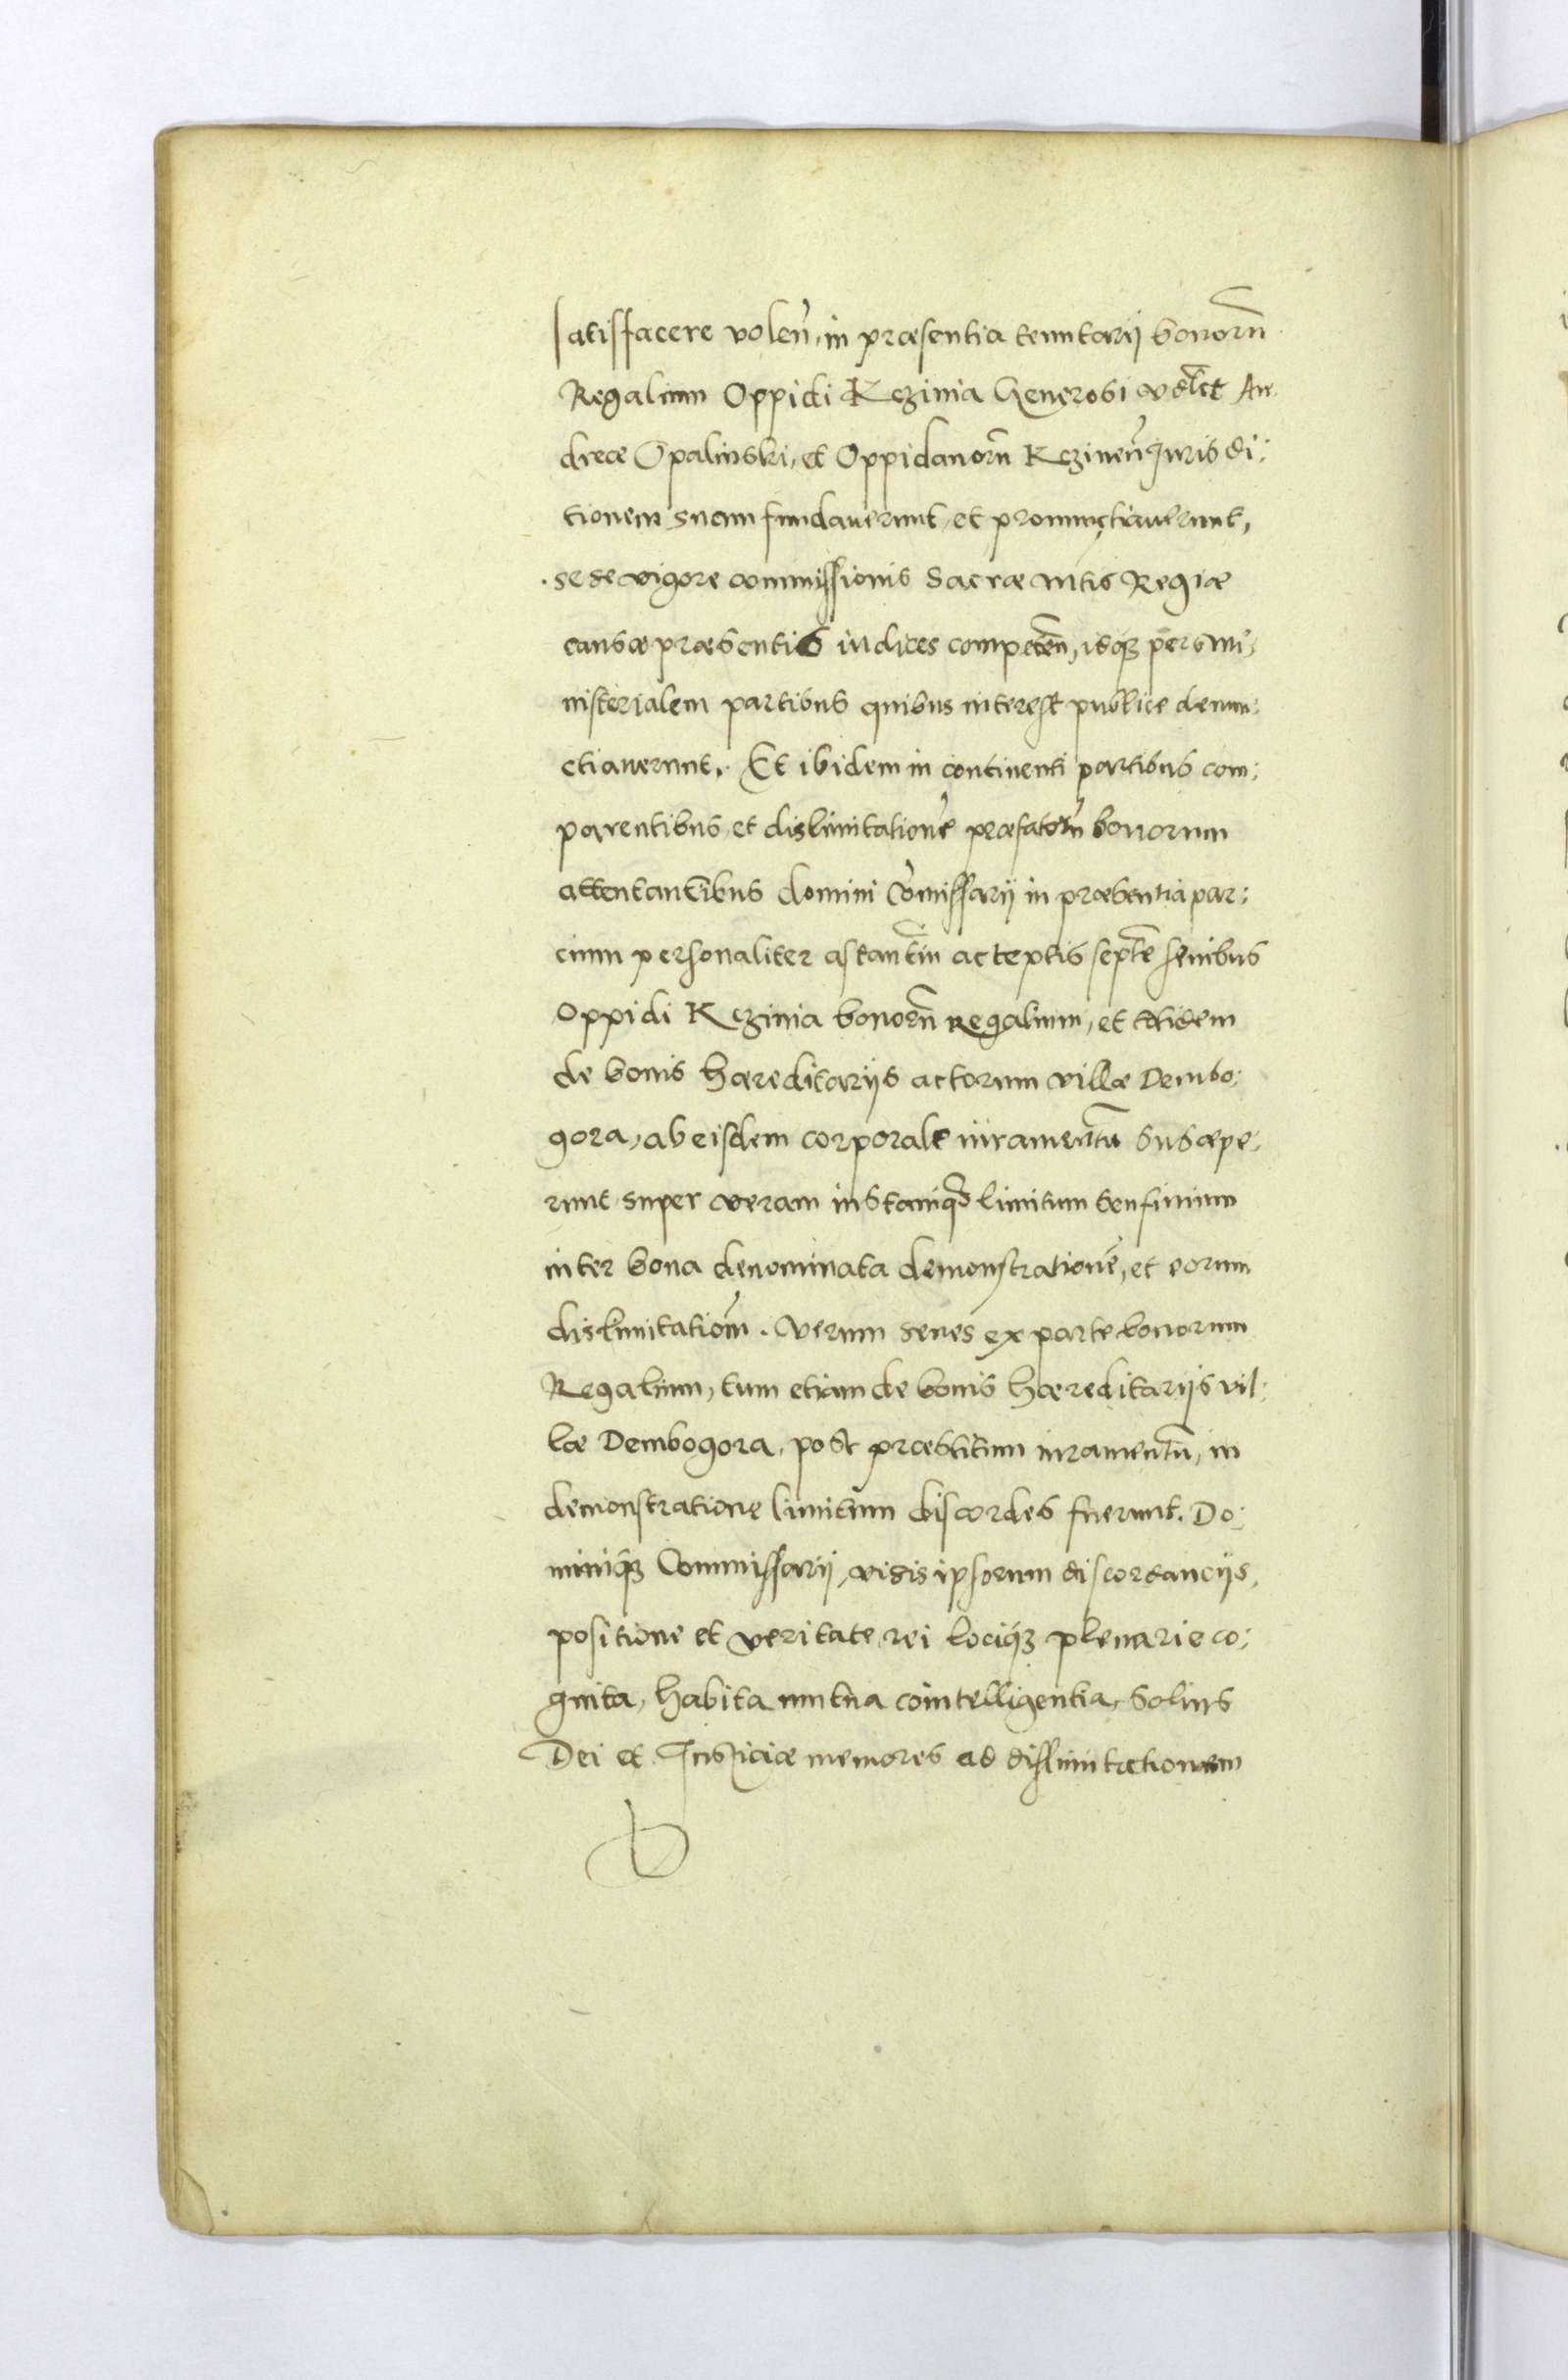 satisfacere volen̄, in præsentia tenutarij bonorū
Regalium Oppidi Kczinia Generosi vdlct An-
dreæ Opalinski, et Oppidanorū Kczinen̄ Jurisdi:
tionem suam fundaverunt, et pronunctiaverunt,
se de vigore commissionis Sacræ Mtis Regiæ
causæ præsentis iudices competen̄, idq3 per Mi:
nisterialem partibus quibus interest publice denun:
ctiaverunt. Et ibidem in continenti partibus com:
parentibus, et dislimitationē præfatorū bonorum
attentantibus domini Cōmissarij in præsentia par:
cium personaliter astantiū acceptis septē senibus
Oppidi Kczinia bonorū regalium, et totidem
de bonis hæreditarijs actorum villæ Dembo:
gora, ab eisdem corporale iuramentū suscæpe:
runt super veram iustamq3 limitum seu finium
inter bona denominata demonstrationē, et eorum
dislimitationē. Verum senes ex parte bonorum
Regalium, tum etiam de bonis hæreditarijs vil:
læ Dembogora, post præstitum iuramentū, in
demonstratione limitum discordes fuerunt. Do:
miniq3 Commissarij, visis ipsorum discordancijs,
positione et veritate rei lociq3 plenarie co:
gnita, habita mutua cointelligentia, solius
Dei et Justiciæ memores ad dislimitationem